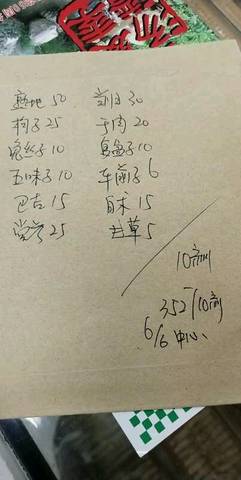 熟地 50 前归 30
枸子 25 于肉 20
兔丝子 10 复盆子 10
五味子 10 车前子 6
巴吉 15 白术 15
党参 25 甘草 5
10剂
352/10剂
6/6 中心